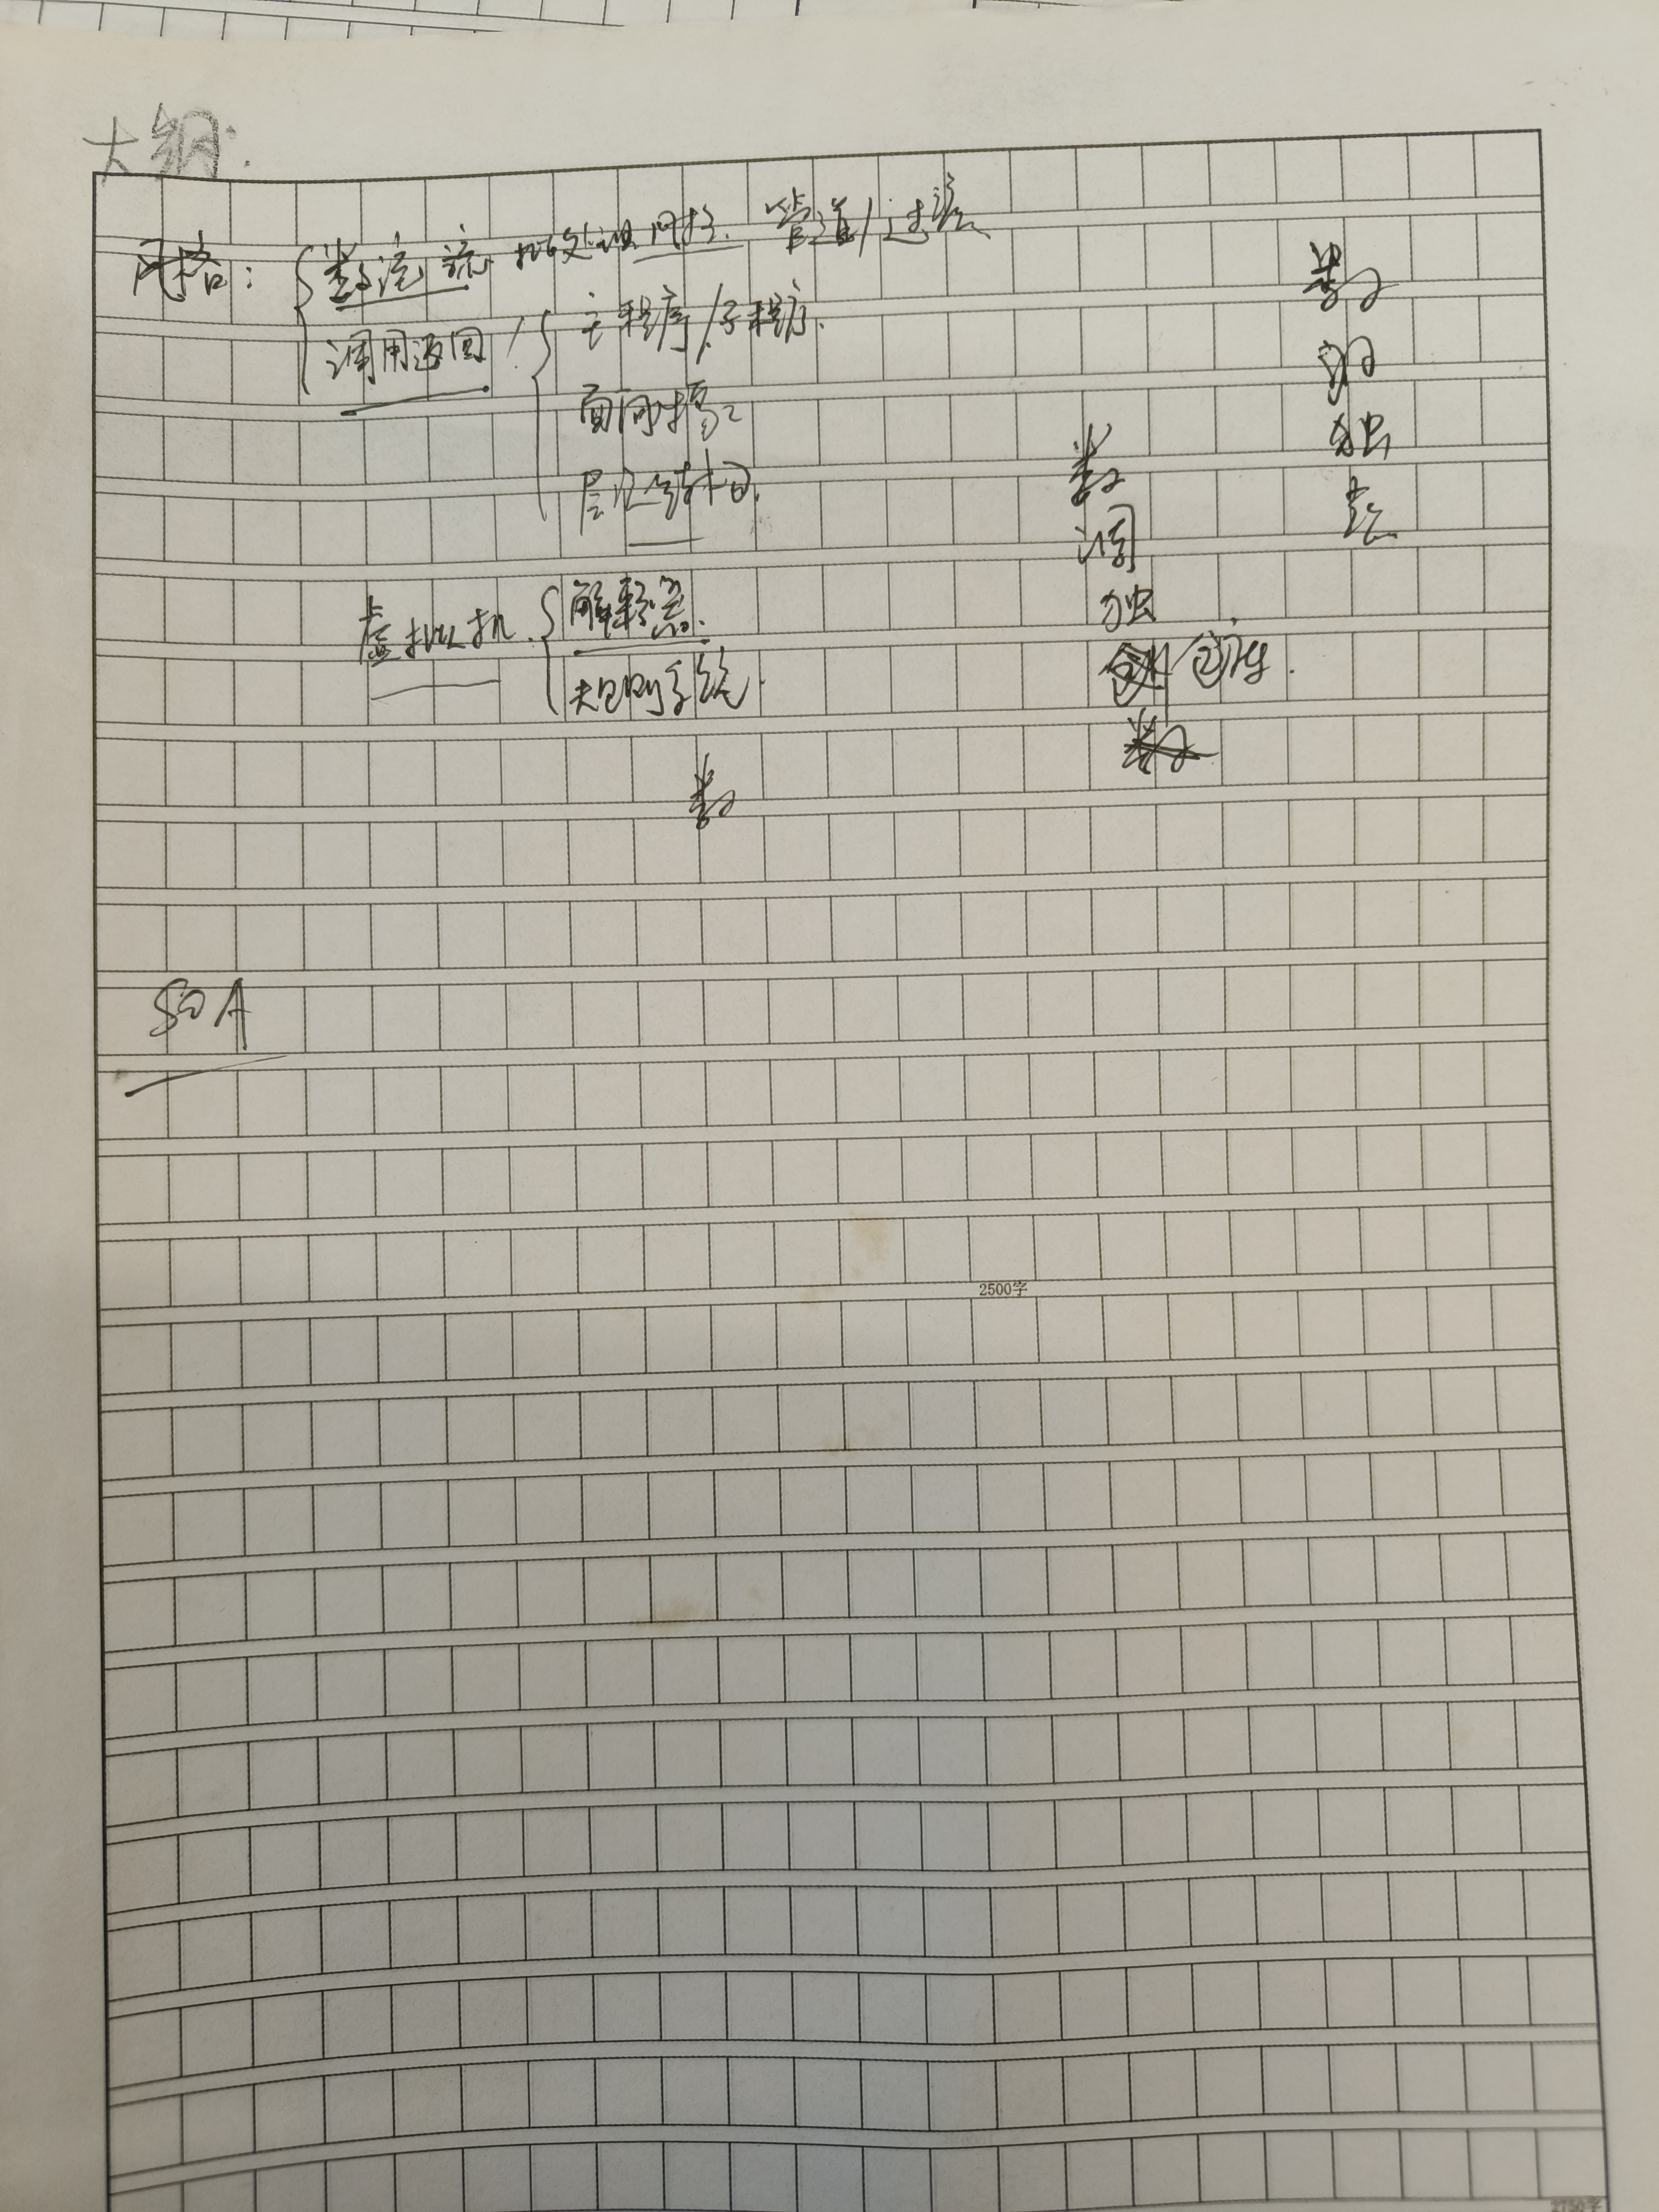 大纲:
风格: 数流流 批处理风格. 管道/过滤
调用返回 主程序/子程序.
面向对象
层次结构.
虚拟机. 解释器.
规则系统.
数
数
调
独
仓库.
数
数
调
独
虚
SOA
2500字
2750字